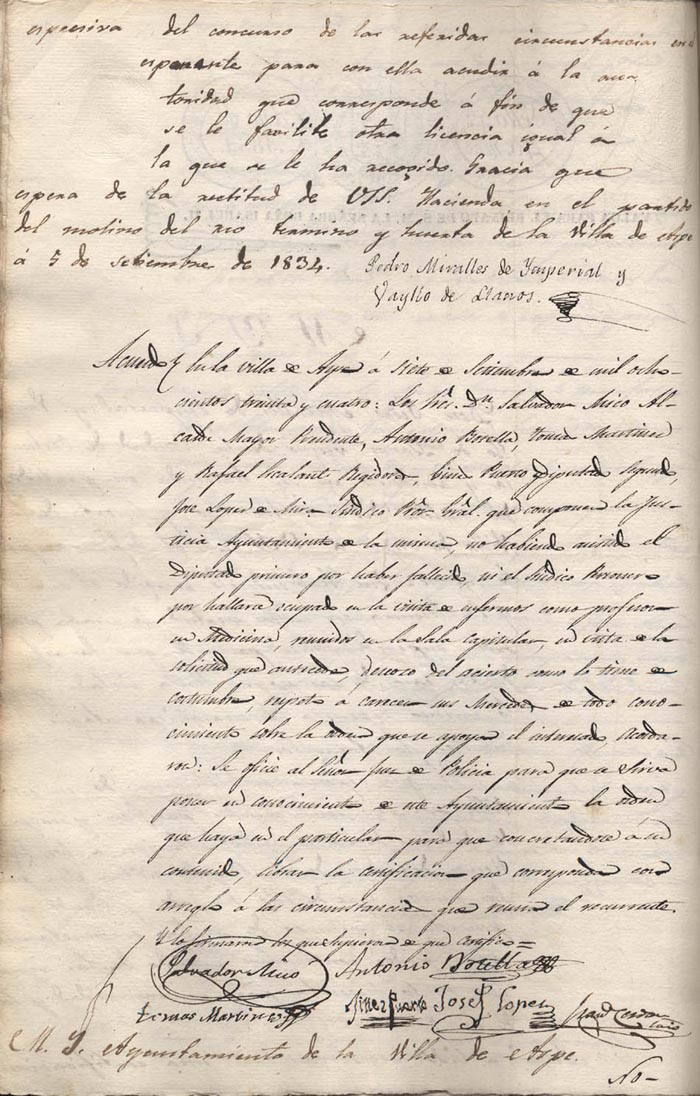 espresiva del concurso de las referidas circunstancias
esponente para con ella acudir á la au
toridad que corresponde á fin de que
se le facilite otra licencia igual á
la que se le ha recogido. Gracia que
espera de la rectitud de VSS. Hacienda en el partido
del molino del rio termino y huerta de la Villa de Aspe
á 5 de setiembre de 1834.
Pedro Miralles de Ymperial y
Vayllo de Llanos.
Acuerdo En la villa de Aspe á siete de Setiembre de mil ocho-
cientos treinta y cuatro: Los Sres. Dn. Salvador Mico Al-
calde Mayor Presidente, Antonio Botella, Tomas Martinez
y Rafael Regidores, Puerto Diputado segundo,
Jose Lopez de Sindico Pror. Gral. que componen la Jus-
ticia Ayuntamiento de la misma, no habiendo asistido el
Diputado primero por haber fallecido, ni el Sindico Personero
por hallarse ocupado en la visita de enfermos como profesor
en Medicina, reunidos en la Sala Capitular, en vista de la
solicitud que antecede, deseoso del acierto como lo tiene de
costumbre, respeto á carecer sus Mercedes de todo cono-
cimiento sobre la orden que se apoya el interesado, Acorda-
ron: Se oficie al Señor de Policia para que se sirva
poner en conocimiento de este Ayuntamiento la orden
que haya en el particular para que concretandose á su
contenido, librar la certificacion que corresponda con
arreglo á las circunstancias que reuna el recurrente.
Y lo firmaron los que supieron de que certifico=
Salvador Micó Antonio Botella
Tomas Martinez Puerto Josef Lopez
M. Y. Ayuntamiento de la Villa de Aspe.
No-